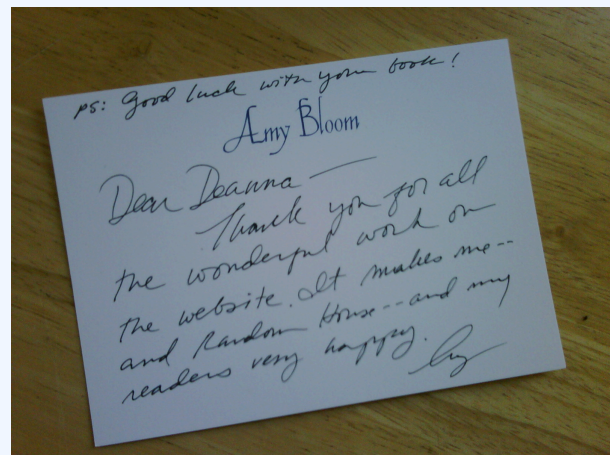 PS: Good luck with your book!
Amy Bloom
Dear Deanna —
Thank you for all
the wonderful work on
the website. It makes me--
and Random House--and my
readers very happy.
Amy